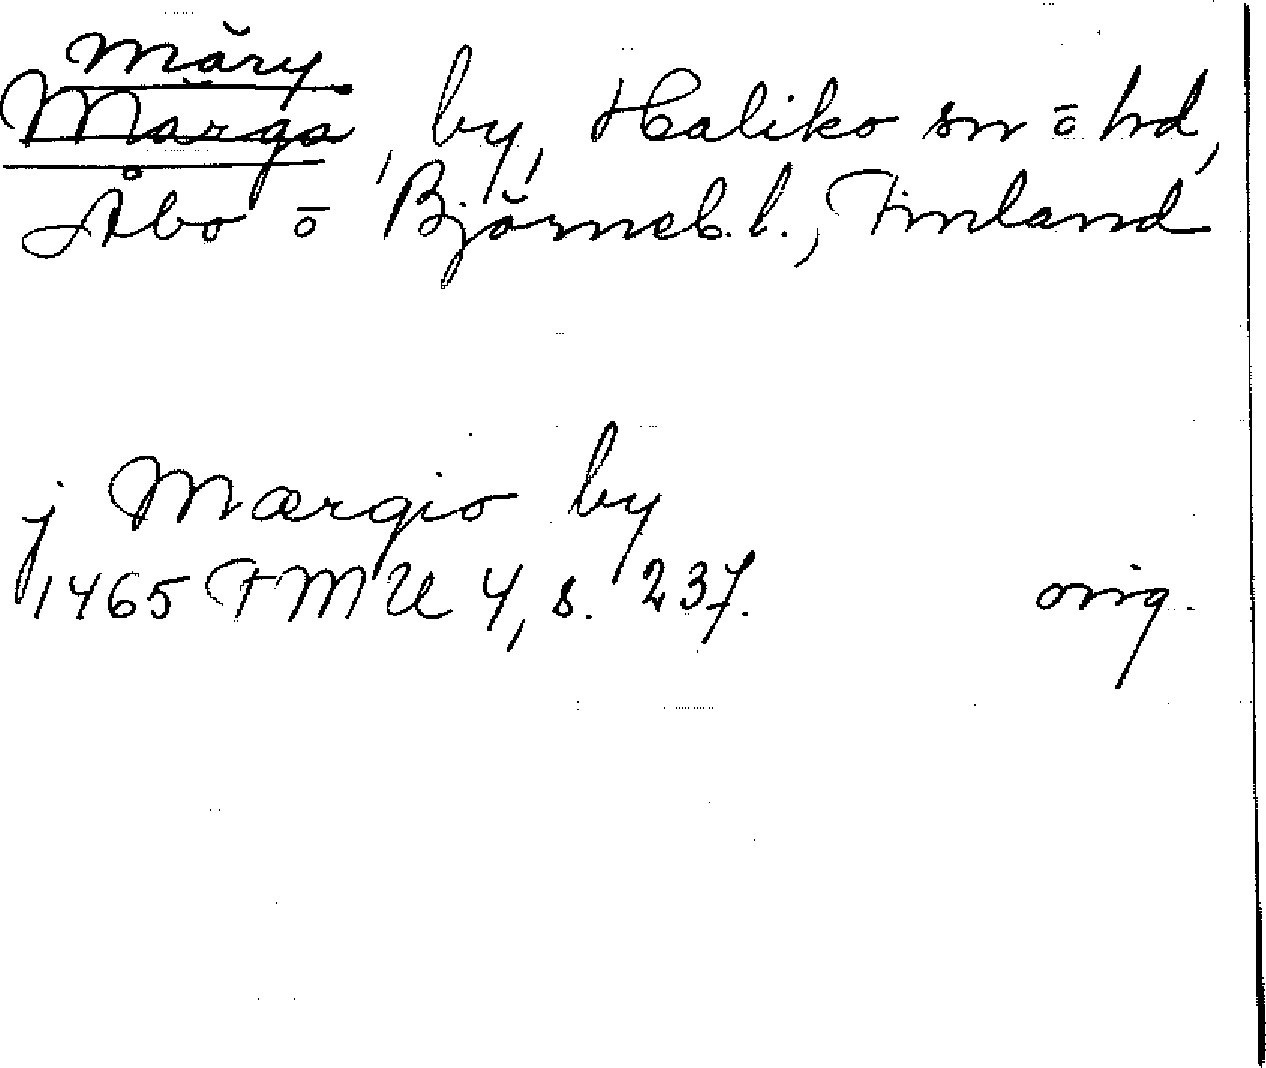 Märy
Märga, by, Haliko sn o hd,
Åbo o Björneb. l., Finland
j Mærgio by
1465 FMU 4, s. 237. orig.